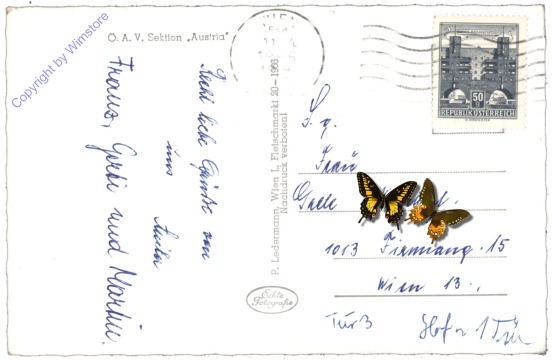 Copyright by Wimstore
Ö. A. V. Sektion „Austria"
Recht liebe Grüße von
uns
Anita
Franz, Gerti und Martin.
P. Ledermann, Wien I., Fleischmarkt 20 - 1966
Nachdruck verboten!
Echte
Fotografie
WIEN
50
REPUBLIK ÖSTERREICH
S. g.
Frau
1013 Firmiang. 15
Wien 13.,
Tür 3
Hof 1 Tür